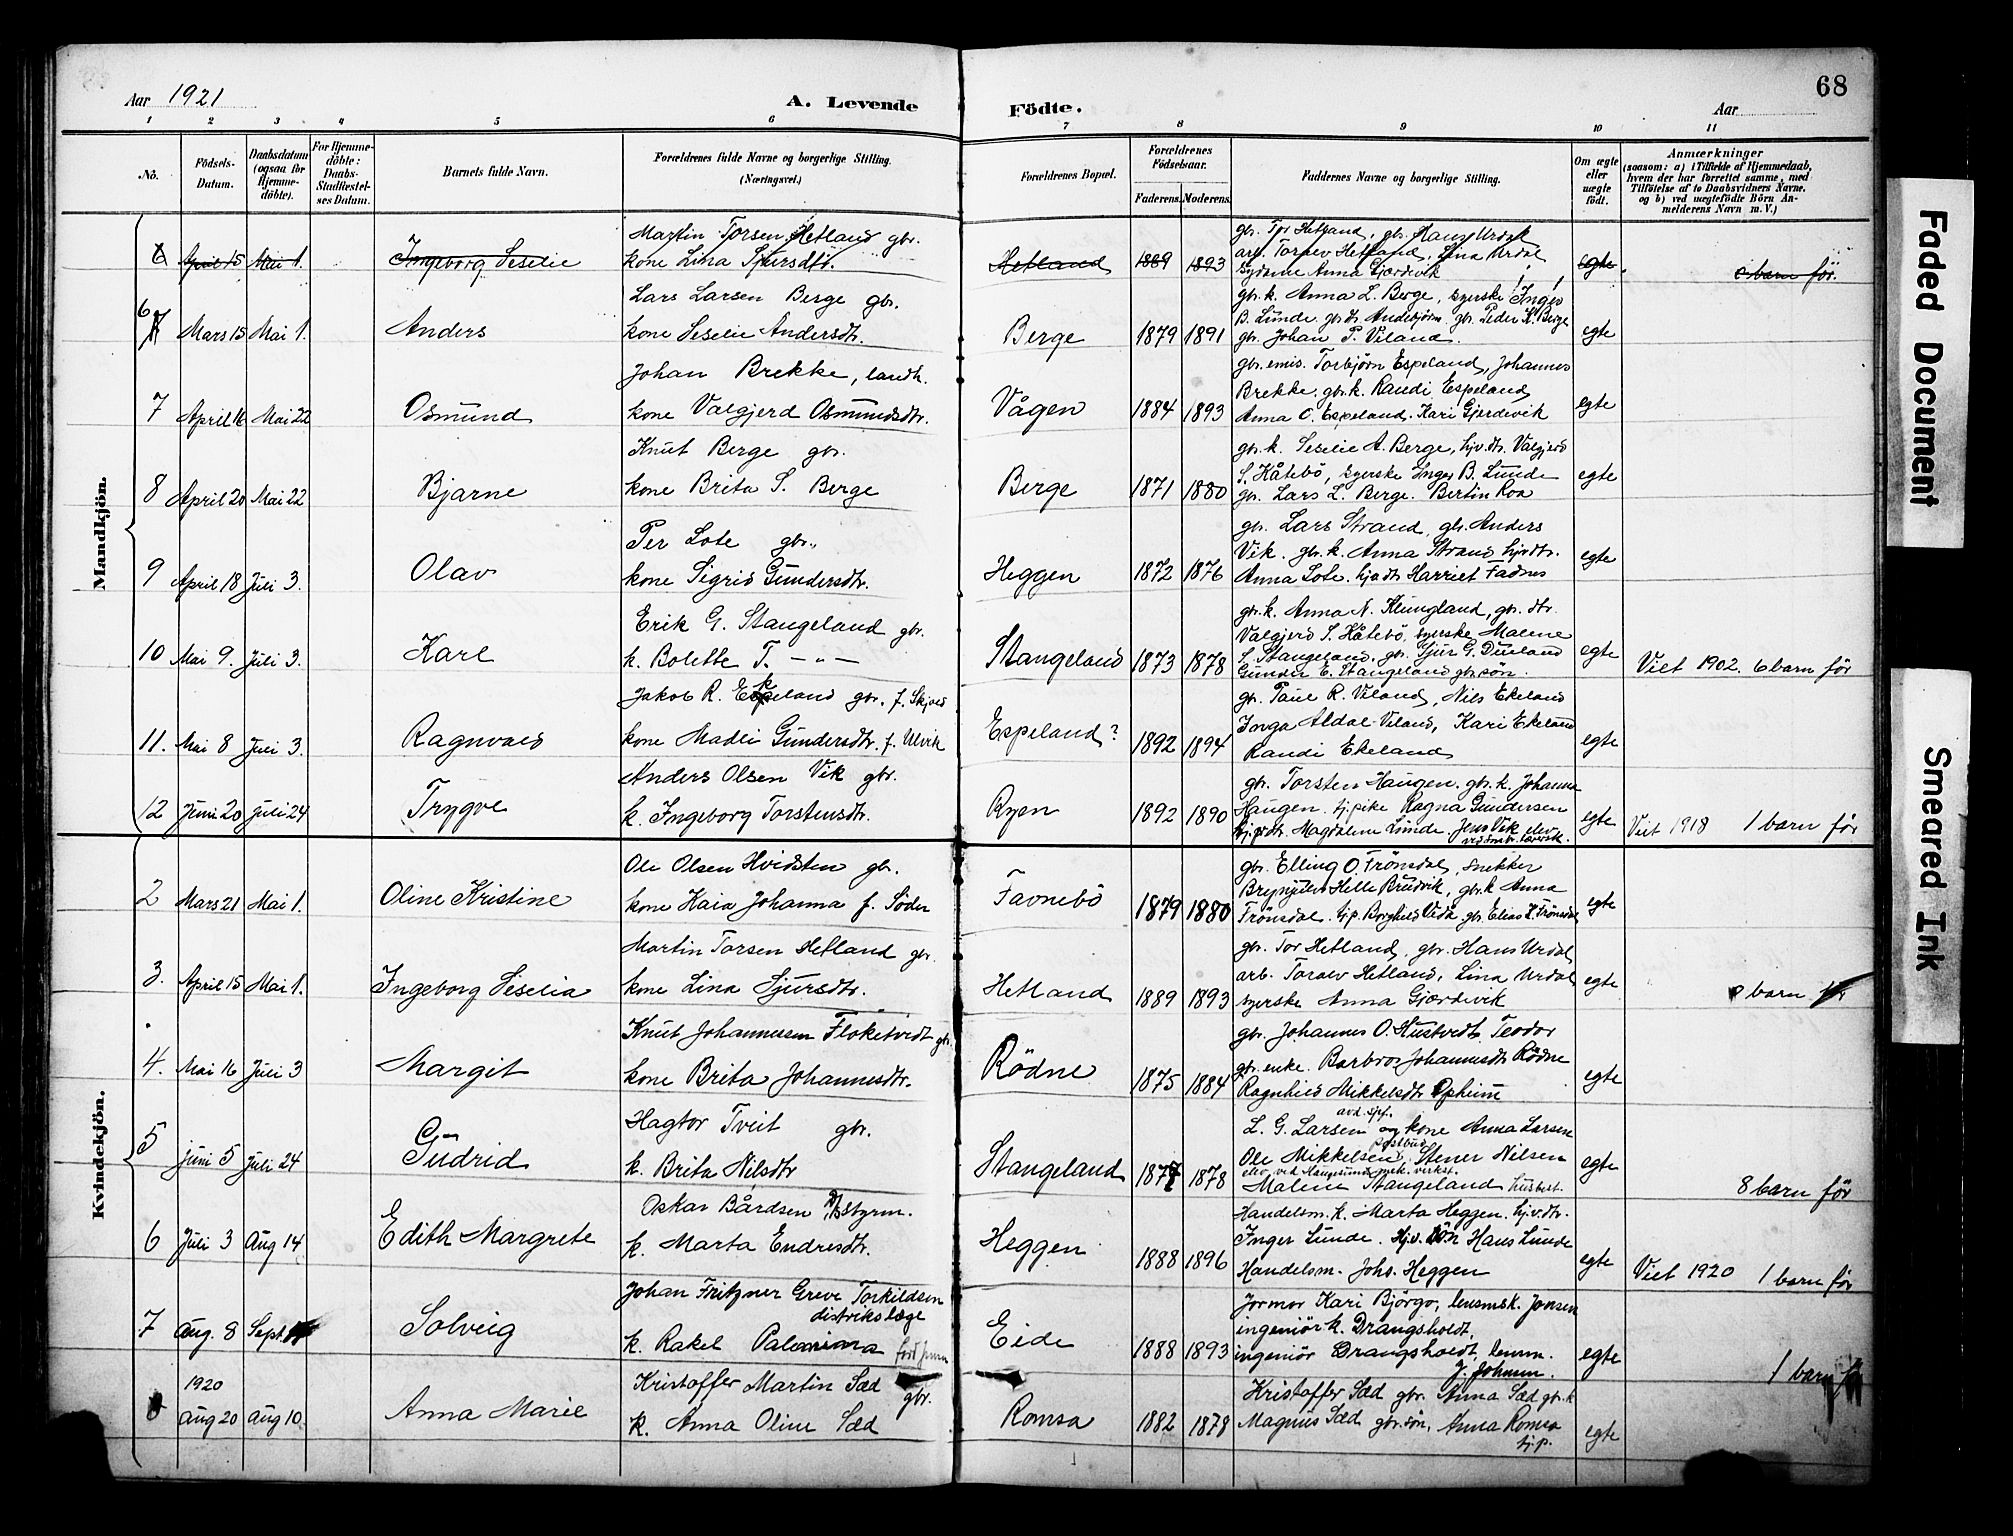 68
Aar 1921
A. Levende Födte.
Aar
1 2 3 4 5 6 7 8 9 10 11
No.
Födsels-Datum.
Daabsdatum (ogsaa for Hjemme-döbte).
For Hjemme-döbte: Daabs-Stadfæstel-ses Datum.
Barnets fulde Navn.
Forældrenes fulde Navne og borgerlige Stilling. (Næringsvei.)
Forældrenes Bopæl.
Forældrenes Födselsaar.
Faderens. Moderens.
Faddernes Navne og borgerlige Stilling.
Om ægte eller uægte födt.
Anmærkninger
(saasom: a) i Tilfælde af Hjemmedaab, hvem der har forrettet samme, med Tilföielse af to Daabsvidners Navne. og b) ved uægtefödte Börn An-melderens Navn m. V.)
Mandkjön.
Martin Torsen Hetland gbr.
gbr. Tor Hetland, gbr. Hans Urdal
6 April 15 Mai 1. Ingeborg Seselie kone Lina Sjursdtr. Hetland 1889 1893 arb. Toralv Hetland, Lina Urdal egte barn för.
sydame Anna Gjerdevik
Lars Larsen Berge gbr.
gbr. k. Anna L. Berge, syerske Inger
6 7 Mars 15 Mai 1. Anders kone Seselie Andersdtr. Berge 1879 1891 B. Lunde. gbr. Peder K. Berge egte
gbr. Johan P. Viland.
Johan Brekke, landh.
gbr. emis. Torbjörn Espeland, Johannes
7 April 16 Mai 22 Osmund kone Valgjerd Osmundsdtr. Vågen 1884 1893 Brekke. gbr. k. Randi Espeland egte
Anna O. Espeland. Kari Gjerdevik
Knut Berge gbr.
gbr. k. Seselie A. Berge, hjv. dtr. Valgjerd
8 April 20 Mai 22 Bjarne kone Brita S. Berge Berge 1871 1880 S. Håtebö, syerske Inger B. Lunde egte
gbr. Lars L. Berge. Bertin Roa
Per Lote gbr.
gbr. Lars Strand, gbr. Anders
9 April 18 Juli 3. Olav kone Sigrid Gundersdtr. Heggen 1872 1876 Vik. gbr. k. Anna Strand hjvdtr. egte
Anna Lote. hjvdtr Harriet Fadnes
Erik G. Stangeland gbr.
gbr. k. Anna N. Klungland, gbr. dtr.
10 Mai 9. Juli 3. Karl k. Bolette T. -"- Stangeland 1873 1878 Valgjerd S. Håtebö, syerske Malene egte Viet 1902. 6 barn för
S. Stangeland. gbr. Sjur G. Dueland
Gunder E. Stangeland gbr. sön.
Jakob R. Espeland gbr. f. Skjold
gbr. Paul R. Viland, Nils Ekeland
11. Mai 8 Juli 3. Ragnvald kone Madli Gundersdtr. f. Ulvik Espeland? 1892 1894 Inga Aldal Viland, Kari Ekeland egte
Randi Ekeland
Anders Olsen Vik gbr.
gbr. Torsten Haugen. gbr. k. Johanna
12 Juni 20 Juli 24 Trygve k. Ingeborg Torstensdtr. Ryen 1892 1890 Haugen. tj. pike Ragna Gundersen egte Viet 1918 1 barn för
Magdalene Lunde. Jens Vik elev
Kvindekjön.
Ole Olsen Hvidsten gbr.
gbr. Elling O. Frönsdal, snekker
2 Mars 21 Mai 1. Oline Kristine kone Kaia Johanna f. Söder Favnebö 1879 1880 Brynjulv Helle Brudvik, gbr. k. Anna egte
Frönsdal. tj. p. Borghild Veda gbr. Elias K. Frönsdal
Martin Torsen Hetland gbr.
gbr. Tor Hetland, gbr. Hans Urdal,
3. April 15 Mai 1. Ingeborg Seselia kone Lina Sjursdtr. Hetland 1889 1893 arb. Toralv Hetland, Lina Urdal egte barn för
syerske Anna Gjerdevik
Knut Johannessen Floketvedt gbr.
gbr. Johannes O. Hustvedt Teodor
4. Mai 16 Juli 3 Margit kone Brita Johannesdtr. Rödne 1875 1884 gbr. enke. Barbro Johannesdtr Rödne egte
Ragnhild Mikkelsdtr Opheim
Hagtor Tveit gbr.
avd. sjef.
L. G. Larsen og kone Anna Larsen
postbud
5 Juni 5 Juli 24 Gudrid k. Brita Nilsdtr Stangeland 1877 1878 Ole Mikkelsen, Stener Nilsen egte 8 barn för
elev ved Haugesund mek. verkst.
Malene Stangeland husbest.
Oskar Bårdsen styrm.
Handelsm. k. Marta Heggen. hjv. dtr.
6 Juli 3 Aug 14 Edith Margrete k. Marta Endresdtr. Heggen 1888 1896 Inger Lunde. Hjv. sön Hans Lunde egte Viet 1920 1 barn för
Handelsm. Johs. Heggen
Johan Fritzner Greve Torkildsen
distriktslæge
Jormor Kari Björgo, lensmsk. Jonsen
7 Aug. 8 Sept. Solveig k. Rakel Eide 1888 1893 ingeniör k. Drangsholdt, egte 1 barn för
ingeniör Drangsholdt, lensm.
J. Johnsen.
1920
Kristoffer Martin Sæd gbr.
Kristoffer Sæd gbr. Anna Sæd gbr. k
8 Aug 20 Aug 10. Anna Marie k. Anna Oline Sæd Romsa 1882 1878 Magnus Sæd gbr. sön, Anna Romsa egte
tj. p.
Faded Document
Smeared Ink